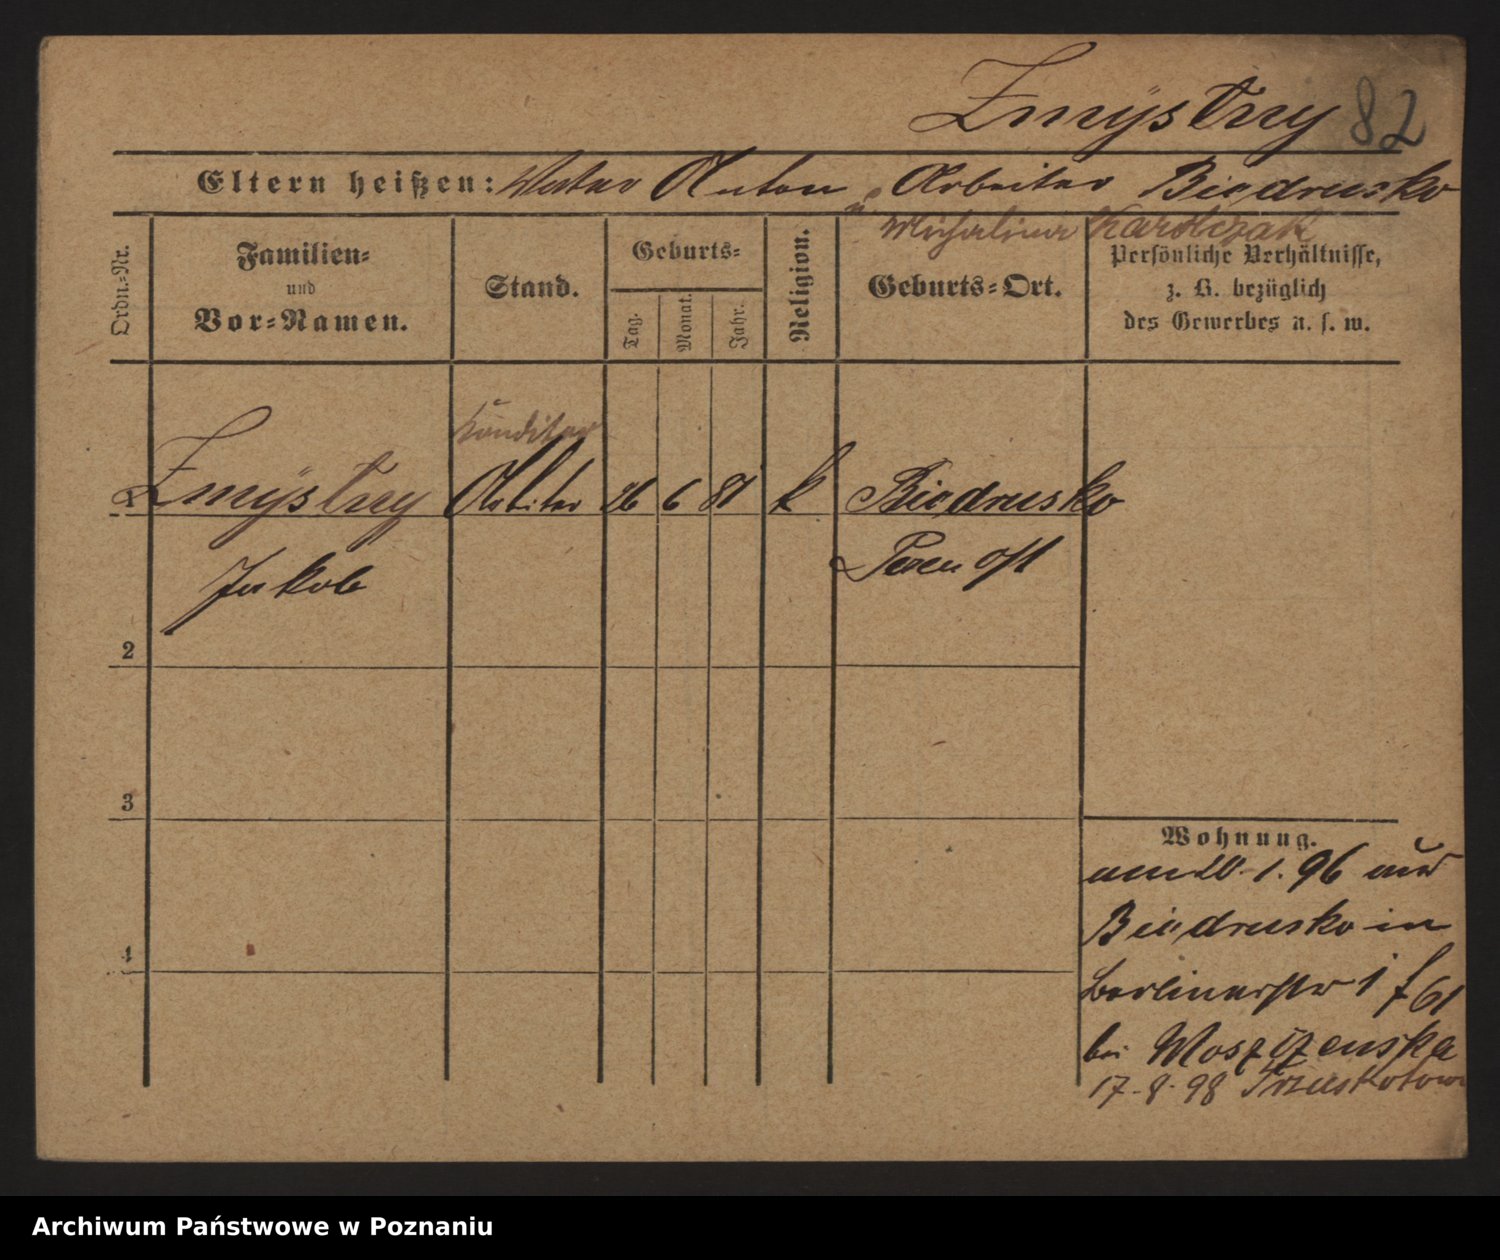 Zmÿstny 82
Eltern heißen: Vater Anton Arbeiter Biedrusko
u. Michalina Karolczak
Ordn.-Nr.
Familien-
und
Vor-Namen.
Stand.
Geburts-
Tag.
Monat.
Jahr.
Religion.
Geburts-Ort.
Persönliche Verhältnisse,
z. B. bezüglich
des Gewerbes u. s. w.
Konditor
1 Zmÿstny Arbeiter 26 6 81 k Biedrusko
Jakob Posen Ost
2
3
4
Wohnung.
am 20.1.96 aus
Biedrusko in
Berlinerstr 1 f 61
bei
17.8.98
Archiwum Państwowe w Poznaniu